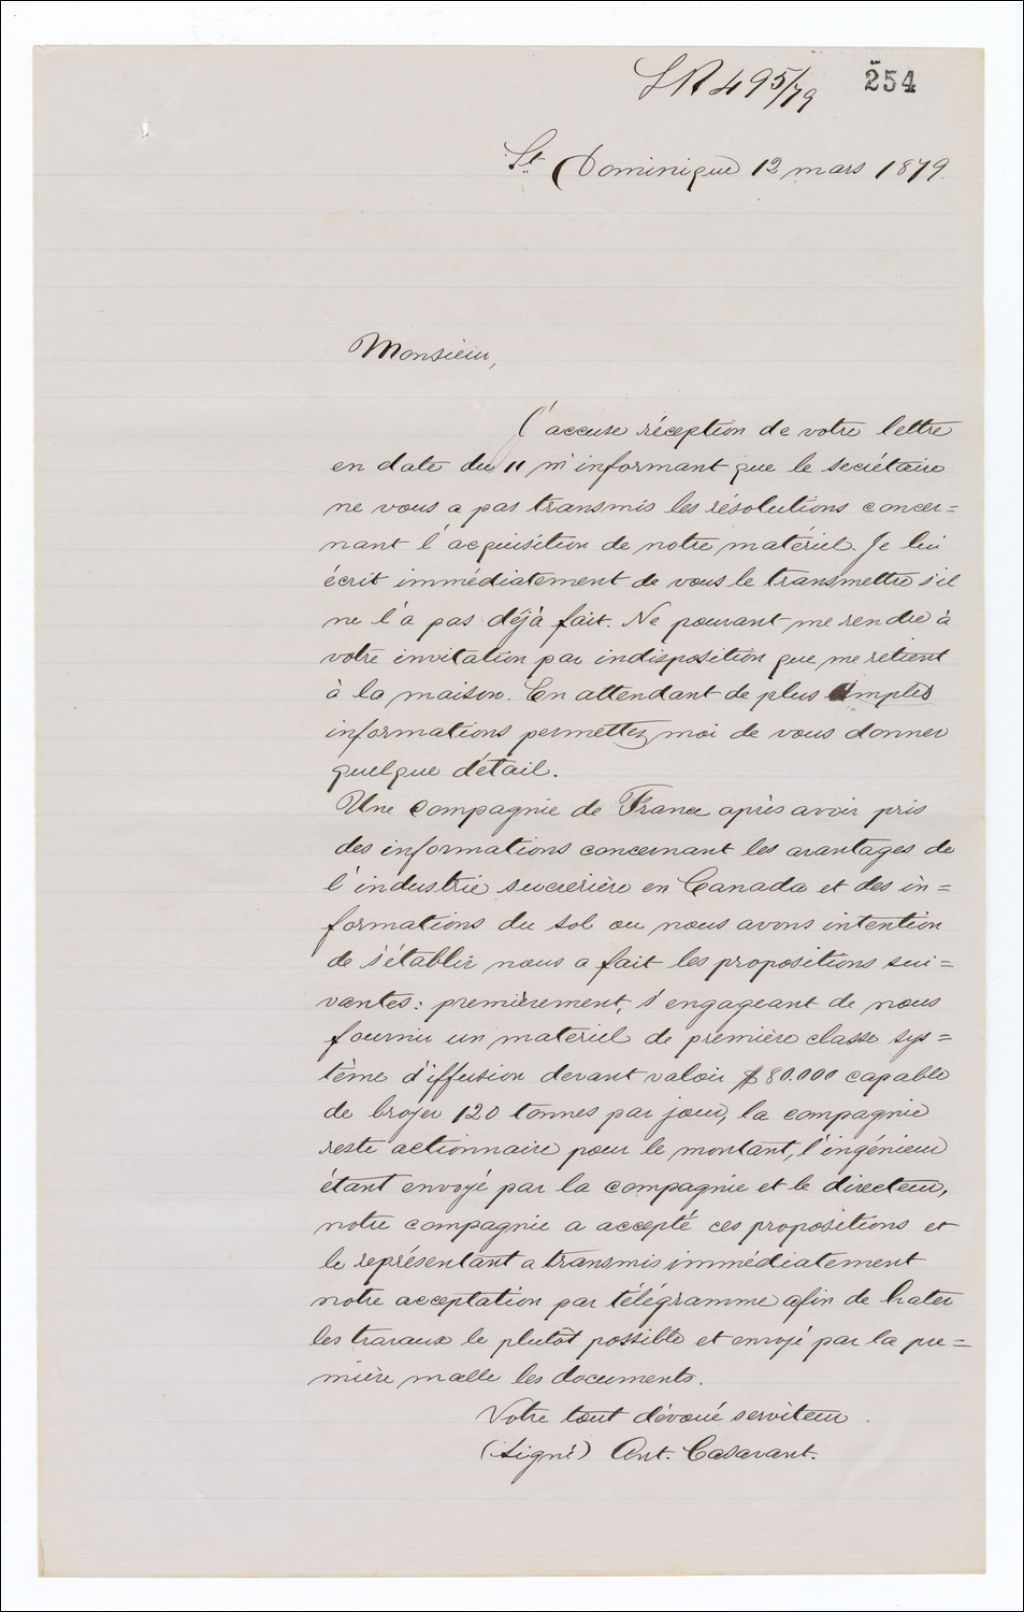 LR 495/79 254
St Dominique 12 mars 1879.
Monsieur,
J'accuse réception de votre lettre
en date du 11 m'informant que le secrétaire
ne vous a pas transmis les résolutions concer=
nant l'acquisition de notre matériel. Je lui
écrit immédiatement de vous le transmettre s'il
ne l'a pas déjà fait. Ne pouvant me rendre à
votre invitation par indisposition que me retient
à la maison. En attendant de plus amples
informations permettez moi de vous donner
quelque détail.
Une compagnie de France après avoir pris
des informations concernant les avantages de
l'industrie sucrerière en Canada et des in=
formations du sol ou nous avons intention
de s'établir nous a fait les propositions sui=
vantes: premièrement, s'engageant de nous
fournir un matériel de première classe sys=
tème d'iffusion devant valoir $80.000 capable
de broyer 120 tonnes par jour, la compagnie
reste actionnaire pour le montant, l'ingénieur
étant envoyé par la compagnie et le directeur,
notre compagnie a accepté ces propositions et
le représentant a transmis immédiatement
notre acceptation par télégramme afin de hater
les travaux le plutôt possible et envoyé par la pre=
mière malle les documents.
Votre tout dévoué serviteur.
(Signé) Ant. Casavant.